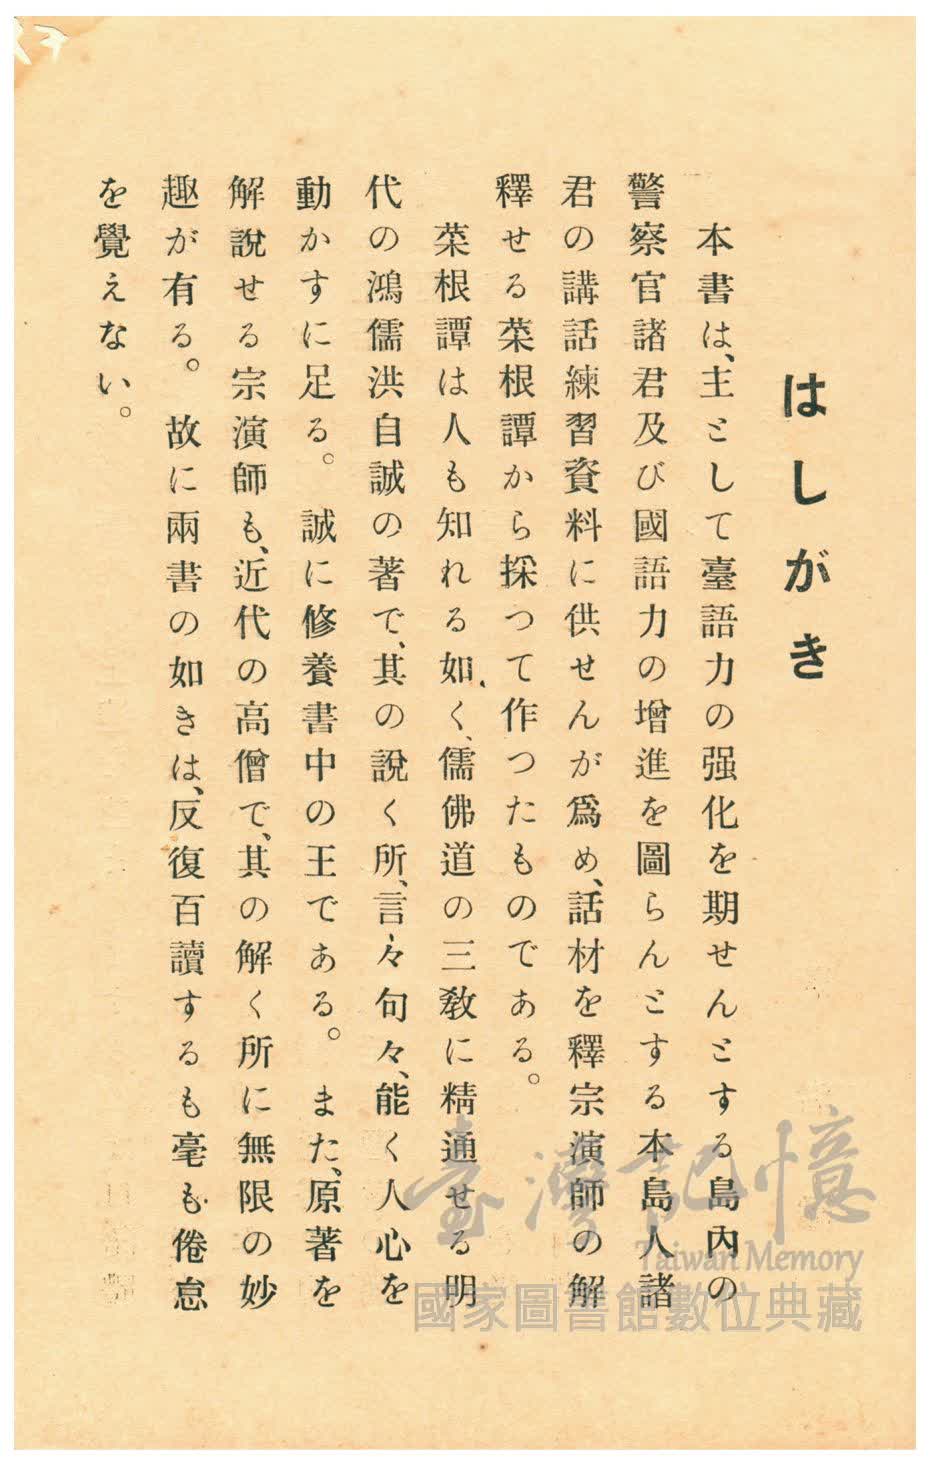 はしがき
本書は、主として臺語力の强化を期せんとする島內の
警察官諸君及び國語力の增進を圖らんとする本島人諸
君の講話練習資料に供せんが爲め、話材を釋宗演師の解
釋せる菜根譚から採つて作つたものである。
菜根譚は人も知れる如く、儒佛道の三敎に精通せる明
代の鴻儒洪自誠の著で、其の說く所、言々句々、能く人心を
動かすに足る。誠に修養書中の王である。また、原著を
解說せる宗演師も、近代の高僧で、其の解く所に無限の妙
趣が有る。故に兩書の如きは、反復百讀するも毫も倦怠
を覺えない。
臺灣記憶
Taiwan Memory
國家圖書館數位典藏